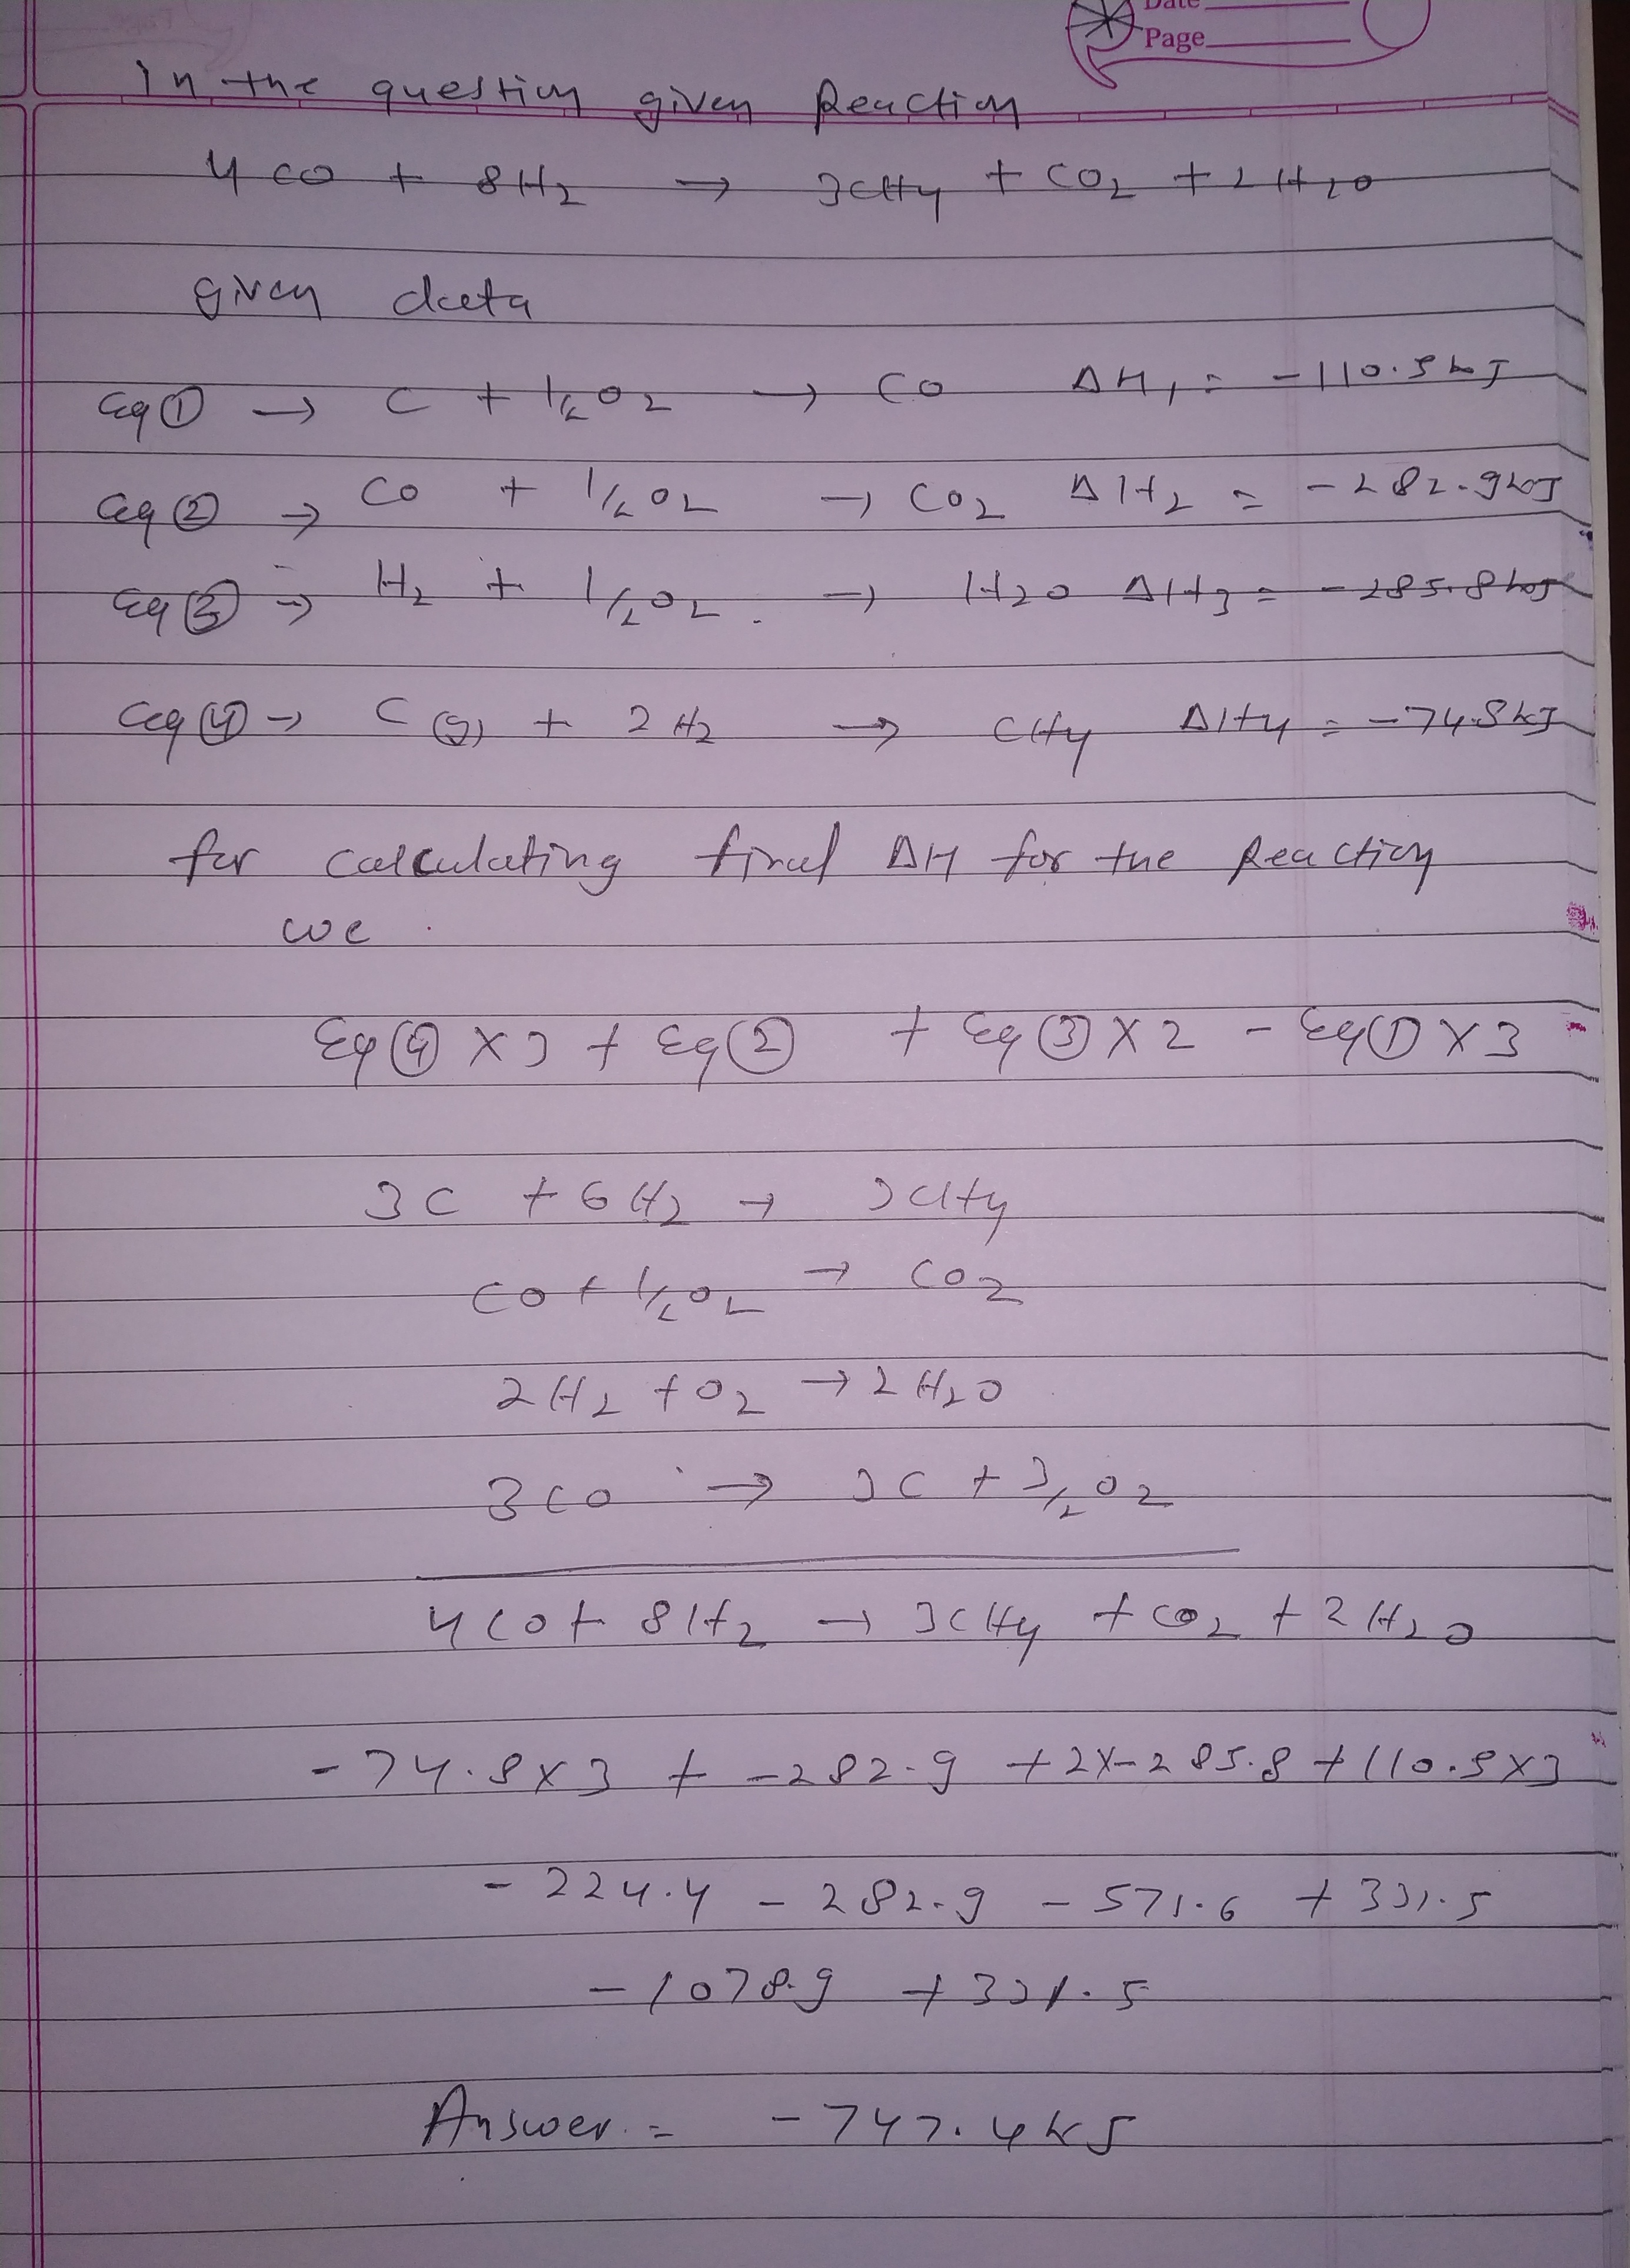 Date
Page
In the question given Reaction
4 CO + 8H2 → 3CH4 + CO2 + 2H2O
given data
Eq ① → C + 1/2 O2 → CO ΔH1 = -110.5 kJ
Eq ② → CO + 1/2 O2 → CO2 ΔH2 = -282.9 kJ
Eq ③ → H2 + 1/2 O2 → H2O ΔH3 = -285.8 kJ
Eq ④ → C (g) + 2H2 → CH4 ΔH4 = -74.8 kJ
for calculating final ΔH for the Reaction
we
Eq ④ X 3 + Eq ② + Eq ③ X 2 - Eq ① X 3
3C + 6H2 → 3CH4
CO + 1/2 O2 → CO2
2H2 + O2 → 2H2O
3CO → 3C + 3/2 O2
4CO + 8H2 → 3CH4 + CO2 + 2H2O
-74.8 X 3 + -282.9 + 2X-285.8 + 110.5 X 3
-224.4 - 282.9 - 571.6 + 331.5
-1078.9 + 331.5
Answer = -747.4 kJ